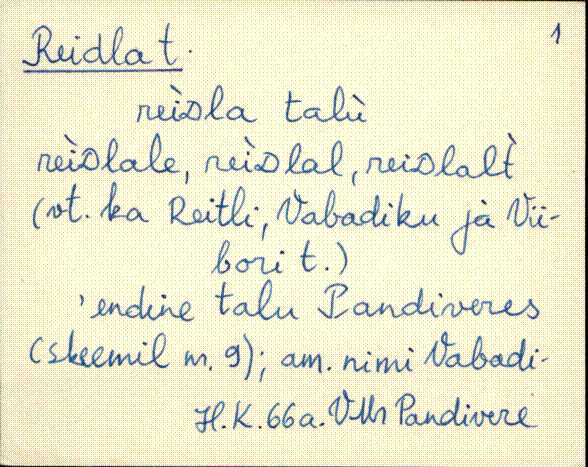 1
Reidla t.
reìᴅla talù
reìᴅlale, reìᴅlal, reiᴅlalt̀
(vt. ka Reitli, Vabadiku jà Vii-
bori t.)
'endine talu Pandiveres
(skeemil nr. 9); am. nimi Vabadi-
H.K. 66a. VMr Pandivere